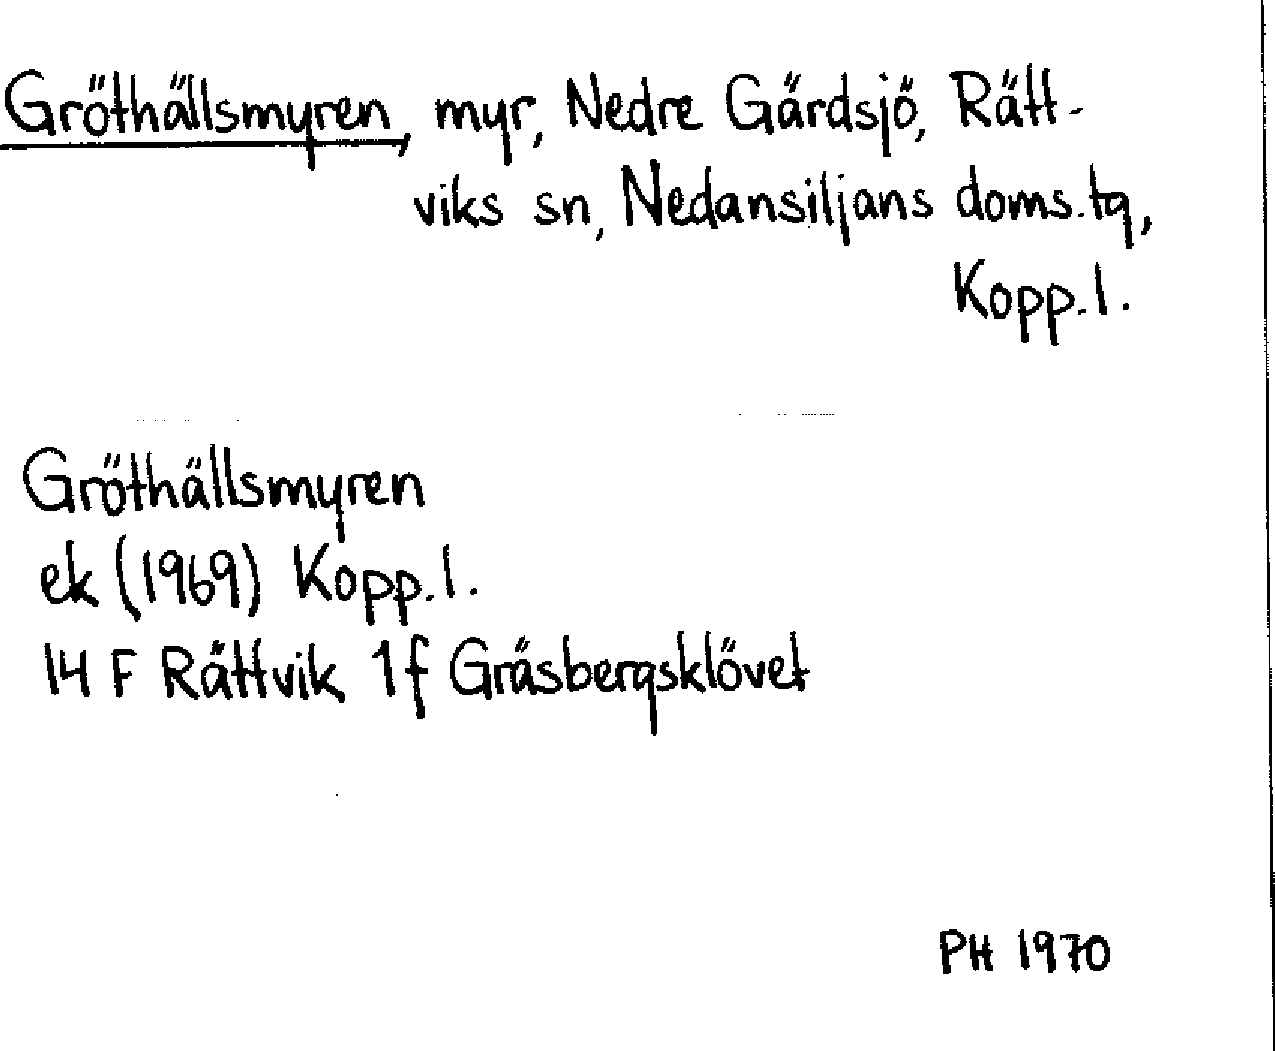 Gröthällsmyren, myr, Nedre Gärdsjö, Rätt-
viks sn, Nedansiljans doms.tg,
Kopp.l.
Gröthällsmyren
ek (1969) Kopp.l.
14 F Rättvik 1f Gräsbergsklövet
PH 1970